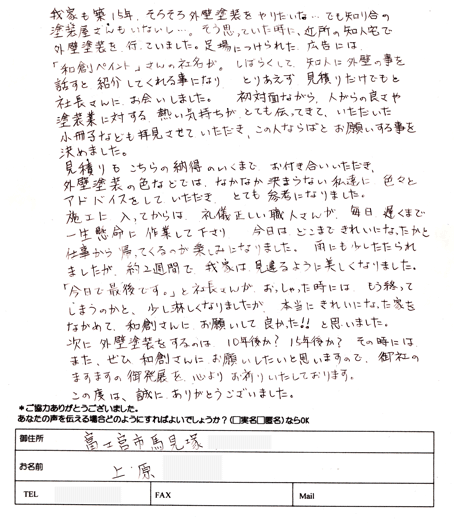 我家も築15年、そろそろ外壁塗装をやりたいな…でも知り合の
塗装屋さんもいないし…。そう思っていた時に、近所の知人宅で
外壁塗装を、行っていました。足場につけられた、広告には、
「和創ペイント」さんの社名が。しばらくして、知人に外壁の事を
話すと紹介してくれる事になり　とりあえず見積りだけでもと
社長さんに、お会いしました。　初対面ながら、人がらの良さや
塗装業に対する　熱い気持ちが、とても伝ってきて、いただいた
小冊子なども拝見させていただき、この人ならばとお願いする事を
決めました。
見積りも　こちらの納得のいくまで、お付き合いいただき、
外壁塗装の色などでは、なかなか決まらない私達に　色々と
アドバイスをしていただき、とても参考になりました。
施工に入ってからは、礼儀正しい職人さんが、毎日遅くまで
一生懸命に　作業して下さり　今日はどこまできれいになったかと
仕事から帰ってくるのが楽しみになりました。雨にも少したたられ
ましたが、約2週間で　我家は見違るように美しくなりました。
「今日で最後です。」と社長さんが、おっしゃった時には、もう終って
しまうのかと、少し淋しくなりましたが、本当にきれいになった家を
ながめて、和創さんに、お願いして良かった!!と思いました。
次に外壁塗装をするのは、10年後か？15年後か？その時には
また、ぜひ　和創さんにお願いしたいと思いますので、御社の
ますますの御発展を、心よりお祈りいたしております。
この度は、誠に、ありがとうございました。
＊ご協力ありがとうございました。
あなたの声を伝える場合どのようにすればよいでしょうか？（□実名□匿名）ならOK
御住所　富士宮市馬見塚
お名前　上原
TEL　FAX　Mail